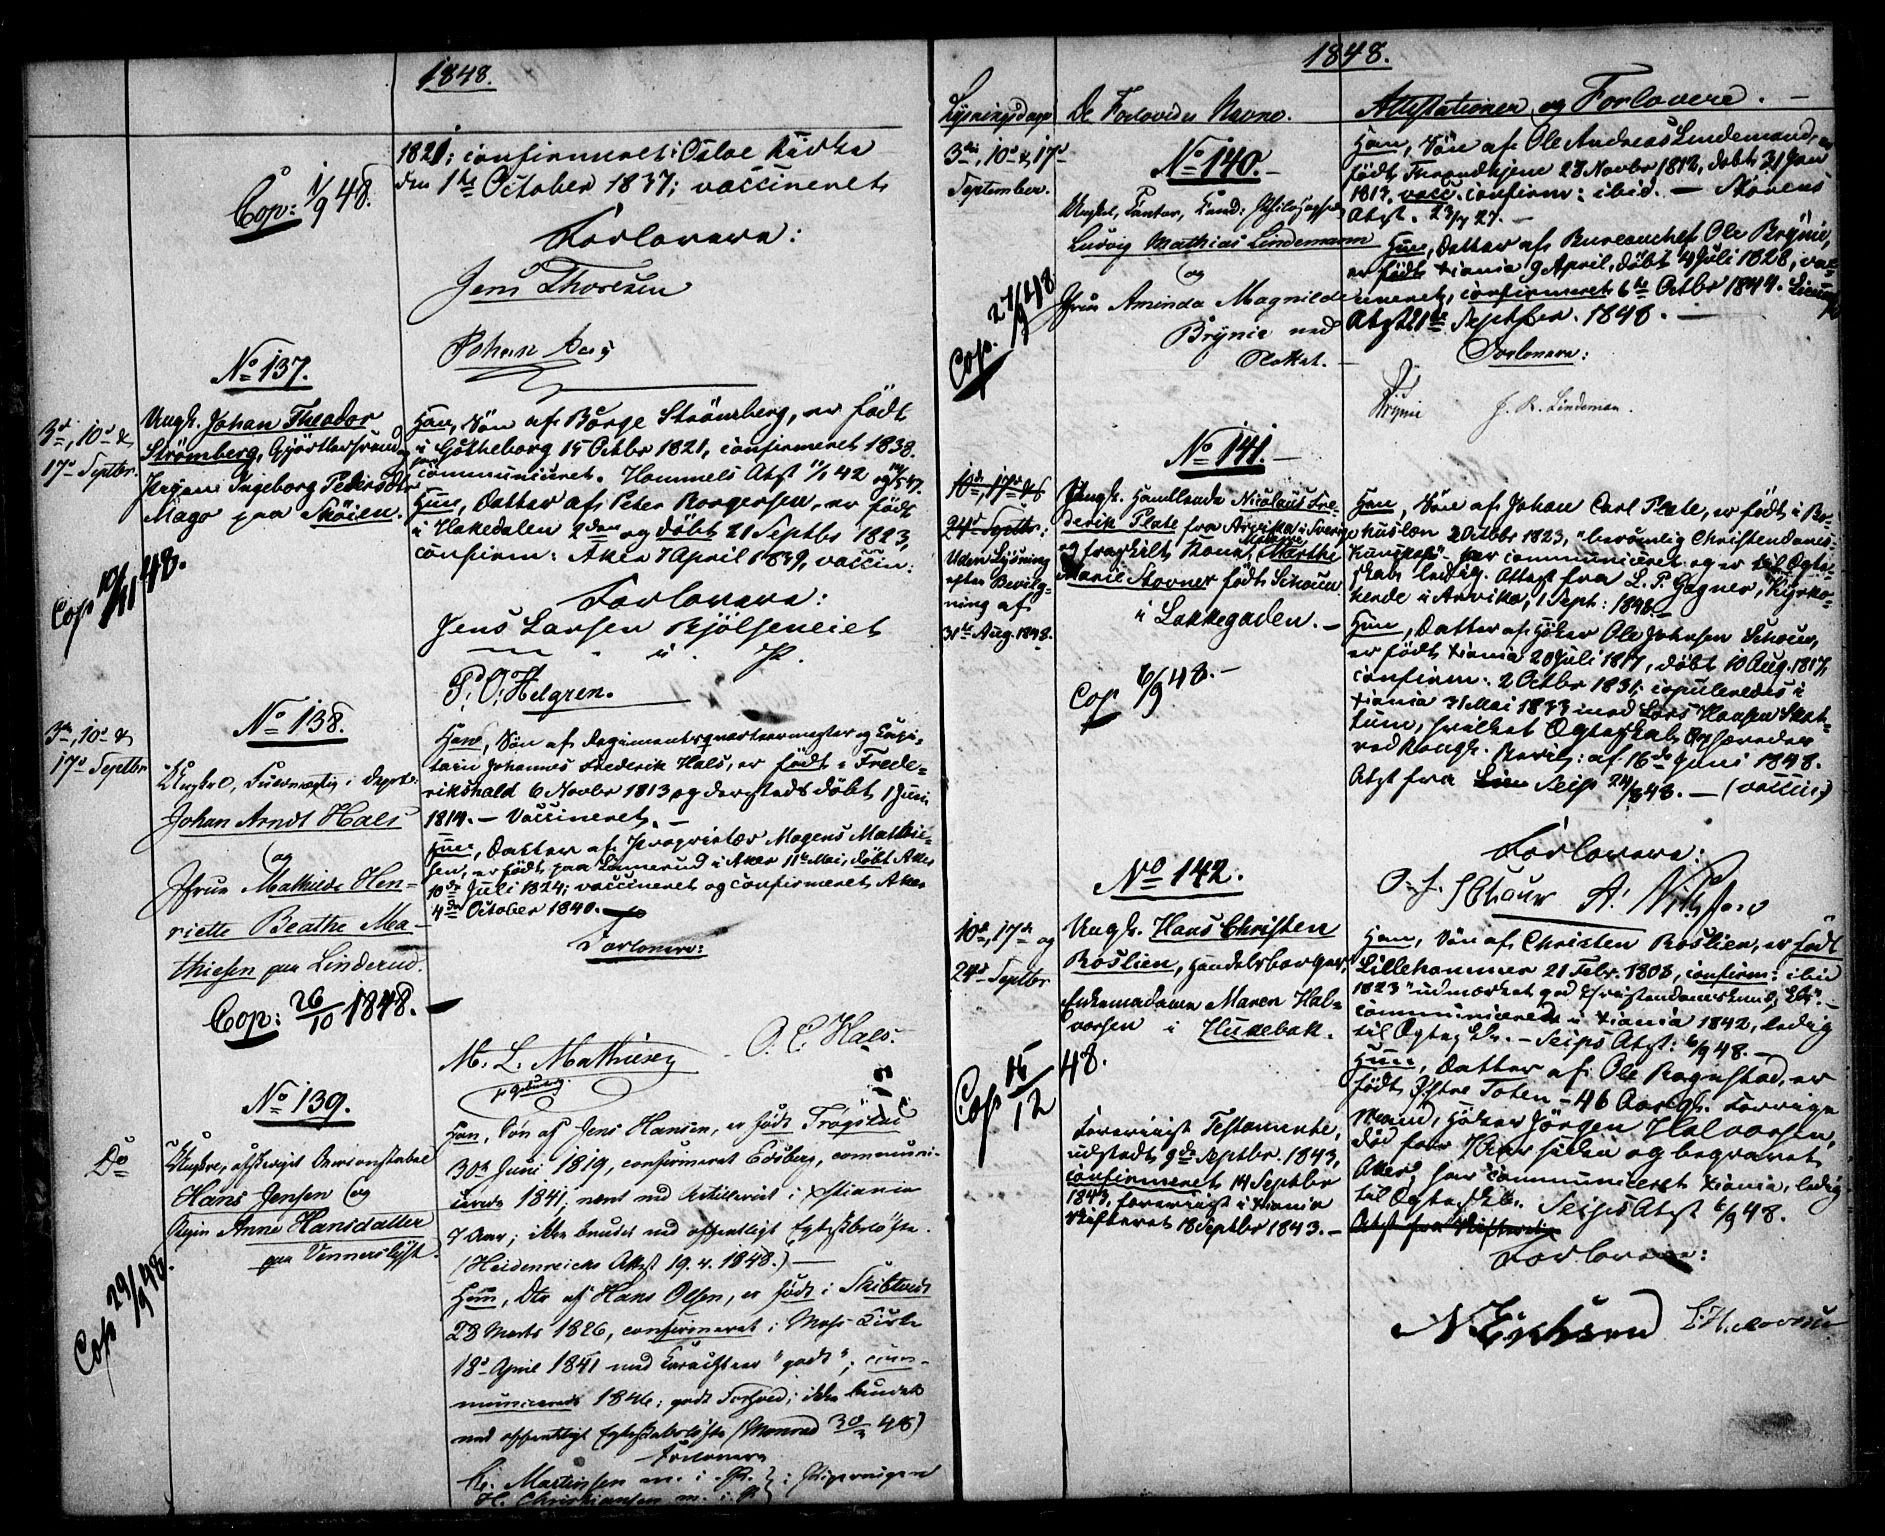 1848.
1821; confirmeret i Osloe Kirke
den 1ste October 1837; vaccineret
Cop: 1/9 48.
Forlovere:
Jens Thoresen
Johan
No 137.
3die, 10de &
17de Septbr.
Ungk. Johan Theodor
Strömberg, Gjörtlersvend
Pigen Ingeborg Pedersdtr
Mago paa Skøien.
Cop 10/11 48.
Han, Søn af Börge Strömberg, er født
i Götheborg 15 Octbr 1821, confirmeret 1838.
communiceret. Hammels Atst 11/1 42 og
Hun, Datter af Peter Borgersen, er født
i Hakedalen 2den og döbt 21 Septbr 1823,
confirm: Aker 7 April 1839, vaccin:
Forlovere:
Jens Larsen Bjölseneiet
P. O. Helgren.
No 138.
3die, 10de &
17de Septbr
Ungkl, Fuldmægtig i Depart:
Johan Arndt Hals
og
Jfrue Mathilde Hen-
riette Beathe Ma-
thiesen paa Linderud.
Cop: 26/10 1848.
Han, Søn af Regimentsqvarteermester og Capi-
tain Johannes Frederik Hals, er født i Frede-
rikshald 6 Novbr 1813 og dersteds döbt 1 Juni
1814. – Vaccineret. –
Hun, Datter af Proprietær Mogens Mathie-
sen, er født paa Linnerud i Aker 11te Mai, döbt Aker
10de Juli 1824; vaccineret og confirmeret Aker
4de October 1840.
Forlovere:
M. L. Mathiesen
O. C. Hals.
No 139.
Do
Ungkre, afskediget
Hans Jensen og
Pigen Anne Hansdatter
paa Vennerslyst.
Cop 29/9 48.
Han, Søn af Jens Hansen, er født Trögstad
30te Juni 1819, confirmeret Edsberg, communi-
cerede 1841; tient ved Artilleriet i Xstiania
7 Aar; ikke bundet ved offentligt Egteskabsløfte.
(Heidenreichs Attst 19. 4. 1848.) —
Hun, Dtr af Hans Olsen, er født i Skibtvedt
28 Marts 1826, confirmeret i Moss Kirke
18de April 1841 med Caracteer "godt"; com-
municerede 1846; godt Forhold; ikke bundet
ved offentligt Egteskabsløfte (Monrad 48)
Forlovere
Martinsen m. i. P.
H. Christiansen m. i. P.
1848.
Lysningsdage
De Forlovedes Navne.
Attestationer og Forlovere. —
3die, 10de & 17de
September.
No 140. –
Ungkl, Cantor, Cand: Philosophiæ
Ludvig Mathias Lindemann
og
Jfrue Aminda Magnilde
Brynie ved
Slottet. –
Cop. 27/9 48
Han, Søn af Ole Andreas Lindemand, er
født Throndhjem 28 Novbr 1812, döbt 31 Jan
1813, vacc. confirm: ibid. –
Atst. 23/9 27. –
Hun, Datter af Bureauchef Ole Brynie,
er født Xiania 9 April, döbt 4 Juli 1828, vac-
cineret, confirmeret 6te Octbr 1844.
Atst 21de Septber. 1848. –
Forlovere:
Brynie
J. R. Lindeman.
No 141. –
10de, 17de &
24de Septbr:
Uden Lysning
efter Bevilg-
ning af
31te Aug. 1848.
Ungk. Handlende Nicolaus Fre-
derik Plate fra Arvika i Sverige
og fraskilt Kone Mathea Marthe
Marie Stovner født Schouw
i Lakkegaden. –
Cop 6/9 48. –
Han, Søn af Johan Carl Plate, er født i Bo-
huslæn 2 Octbr 1823, "berömlig Christendoms-
kundskab" har communiceret og er til Ægte-
skab ledig. Attest fra L. P. Gagner, Kyrko-
herde i Arvika, 1 Sept: 1848.
Hun, Datter af Höker Ole Johnsen Schouw,
er født Xiania 20 Juli 1817, döbt 10 Aug. 1817,
confirm: 2 Octbr 1831; copuleredes i
Xiania 31 Mai 1833 med Lars Hansen
, hvilket Ægteskab Ophævedes
ved Kongl. Bevilg: af 16de Juni 1848.
Atst fra Seip 24/8 48. – (vaccin.)
Forlovere:
O. J. Schouw A. Nilssen
No 142.
10de, 17de og
24de Septbr
Ungk. Hans Christen
Roslien, Handelsborger
Enkemadame Maren Hal-
vorsen i Hukebak.
Cop 15/12 48.
Foreviist Testamente,
udstedt 9de Septbr. 1843,
confirmeret 14 Septbr
1843, foreviist i Xiania
Skifteret 18 Septbr 1843. –
Han, Søn af Christen Roslien, er født
Lillehammer 21 Febr. 1808, confirm: ibid
1823 "udmærket god Christendomskund.
communicerede i Xiania 1842, ledig
til Ægtesk. – Seips Atst: 6/9 48. –
Hun, Datter af Ole Rognstad, er
født Østre Toten – 46 Aar gl. Forrige
Mand, Höker Jörgen Halvorsen,
död for Aar siden og begravet
Aker, har communiceret Xiania, ledig
til Ægteskb. Seips Atst 6/9 48.
Atst fra Skifteretten
Forlovere:
N Eriksen L. Halvorsen